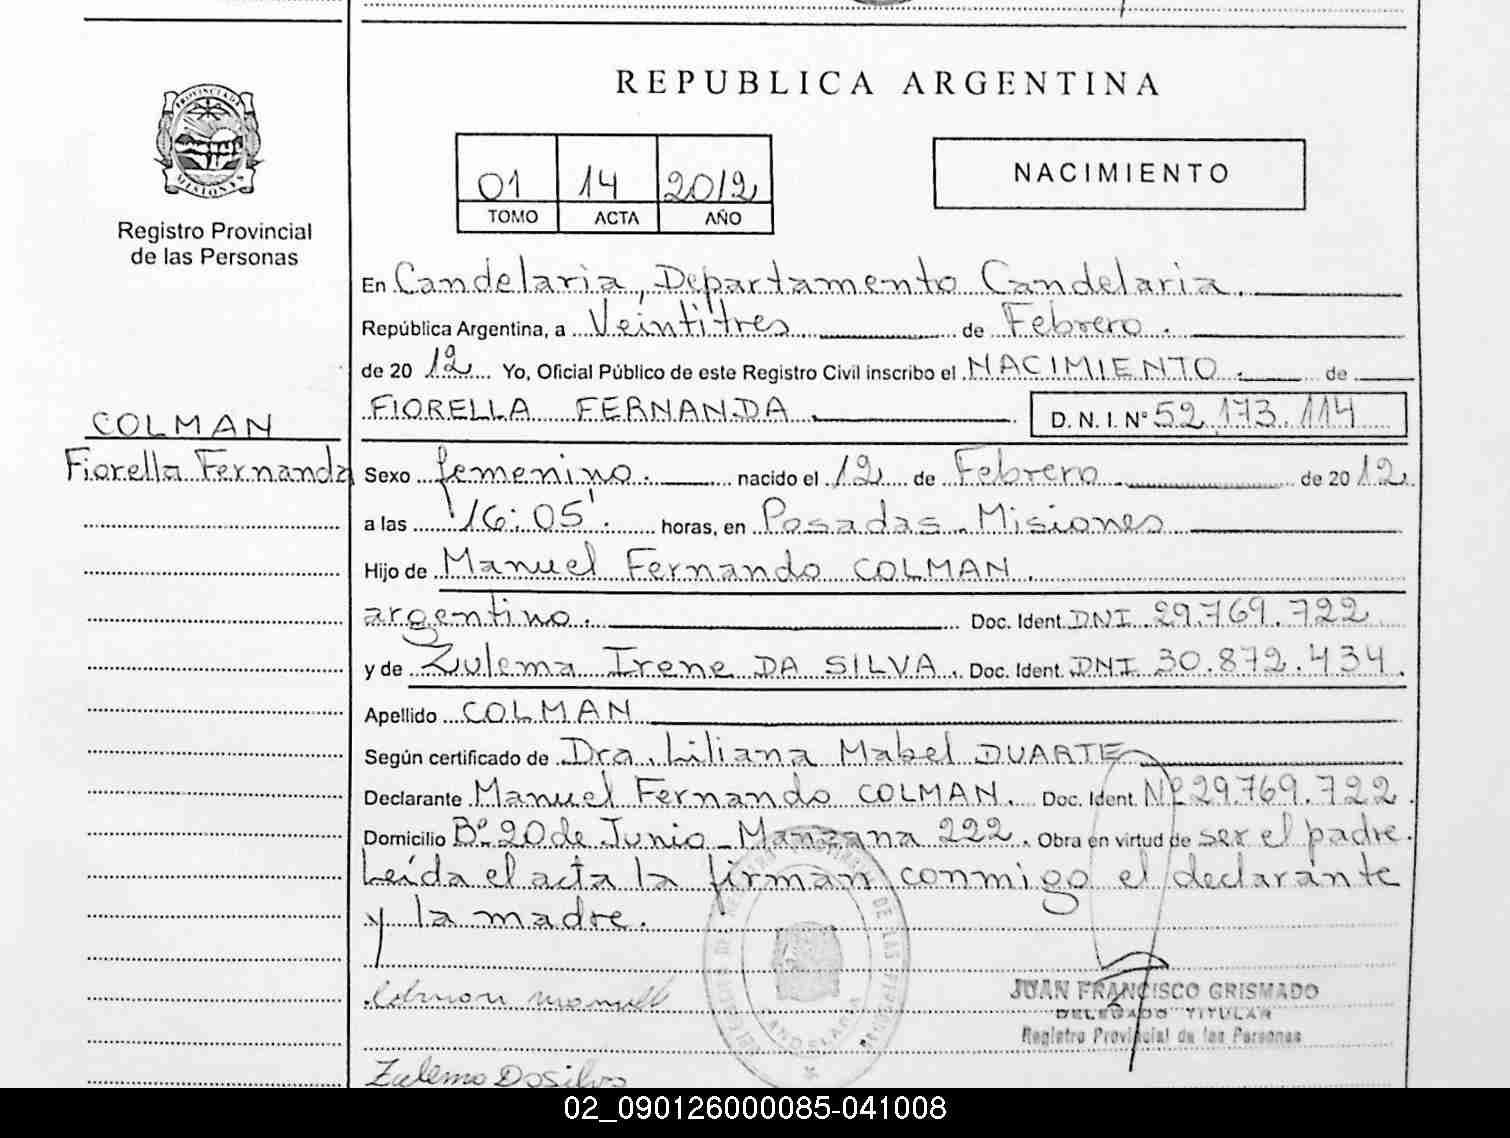 REPUBLICA ARGENTINA
PROVINCIA DE
MISIONES
Registro Provincial
de las Personas
01 14 2012
TOMO ACTA AÑO
NACIMIENTO
En Candelaria, Departamento Candelaria.
República Argentina, a Veintitres de Febrero.
de 20 12 Yo, Oficial Público de este Registro Civil inscribo el NACIMIENTO. de
FIORELLA FERNANDA D. N. I. Nº 52.173.114
COLMAN
Fiorella Fernanda
Sexo femenino. nacido el 12 de Febrero de 20 12.
a las 16:05'. horas, en Posadas - Misiones
Hijo de Manuel Fernando COLMAN.
argentino. Doc. Ident. DNI 29.769.722
y de Zulema Irene DA SILVA. Doc. Ident. DNI 30.872.434.
Apellido COLMAN
Según certificado de Dra. Liliana Mabel DUARTE
Declarante Manuel Fernando COLMAN. Doc. Ident. Nº 29.769.722.
Domicilio Bº 20 de Junio - Manzana 222. Obra en virtud de ser el padre.
Leída el acta la firman conmigo el declarante
y la madre.
Colman Manuel
JUAN FRANCISCO GRISMADO
DELEGADO TITULAR
Registro Provincial de las Personas
CANDELARIA
Zulema Da Silva
02_090126000085-041008